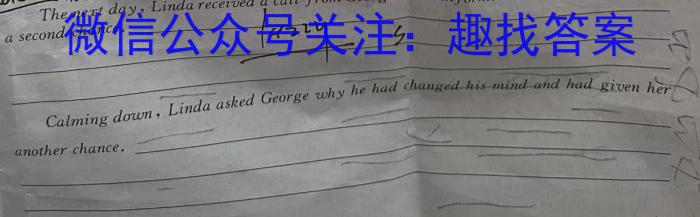 The next day, Linda received a call from
a second chance.
微信公众号关注：趣找答案
Calming down, Linda asked George why he had changed his mind and had given her
another chance.